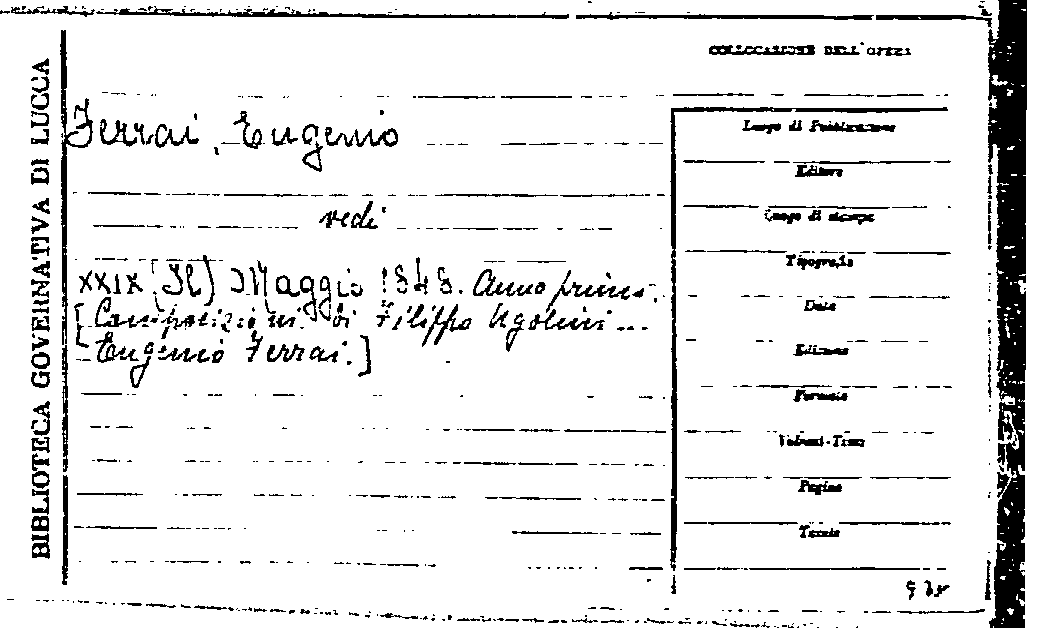 BIBLIOTECA GOVERNATIVA DI LUCCA
COLLOCAZIONE DELL'OPERA
Ferrai, Eugenio
vedi
XXIX (Il) Maggio 1848. Anno primo.
[Composizioni di Filippo Ugolini...
Eugenio Ferrai.]
Luogo di Pubblicazione
Editore
Luogo di stampa
Tipografia
Data
Edizione
Formato
Volumi-Tomi
Pagine
Tavole